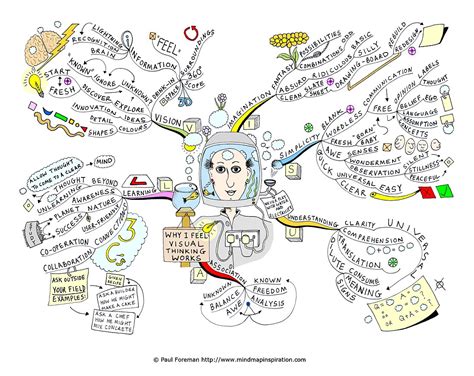 WHY I FEEL
VISUAL
THINKING
WORKS
VISION
LIGHTNING
RECOGNITION
BRAIN
INFORMATION
"FEEL"
SURROUNDINGS
DRINK-IN
SCOPE
START
FRESH
"KNOWN"
IGNORE
UNKNOWN
DISCOVER
EXPLORE
INNOVATION
IDEAS
DETAIL
SHAPES
COLOURS
IMAGINATION
FANTASY
POSSIBILITIES
COMBINATIONS
ODD
ABSURD
RIDICULOUS
BASIC
SILLY
CLEAN
SLATE
SHEET
DRAWING-BOARD
REBUILD
REDESIGN
SIMPLICITY
BLANK
WORDLESS
COMMUNICATION
LABELS
LANGUAGE
FREE
BELIEF
EGO
CONCEPTS
FRESH
"BABY"
AWE
SENSES
WONDERMENT
SILENT
OBSERVATION
QUICK
UNIVERSAL
EASY
CLEAR
PEACEFUL
UNDERSTANDING
CLARITY
COMPREHENSION
TRANSLATION
CONSUME
SIGNS
UNIVERSAL
ASSOCIATION
UNKNOWN
KNOWN
BALANCE
FREEDOM
AWE
ANALYSIS
LEARNING
ALLOW THOUGHT
TO COME TO A CLEAR
MIND
THOUGHT
BEYOND
UNLEARN
AWARENESS
PLANET
NATURE
SUCCESS
OUR
CO-OPERATION
COLLABORATION
ASK OUTSIDE
YOUR FIELD
EXAMPLES!
ASK A BUILDER
HOW HE MIGHT
MAKE A CAKE
ASK A CHEF
HOW HE MIGHT
MIX CONCRETE!
© Paul Foreman http://www.mindmapinspiration.com